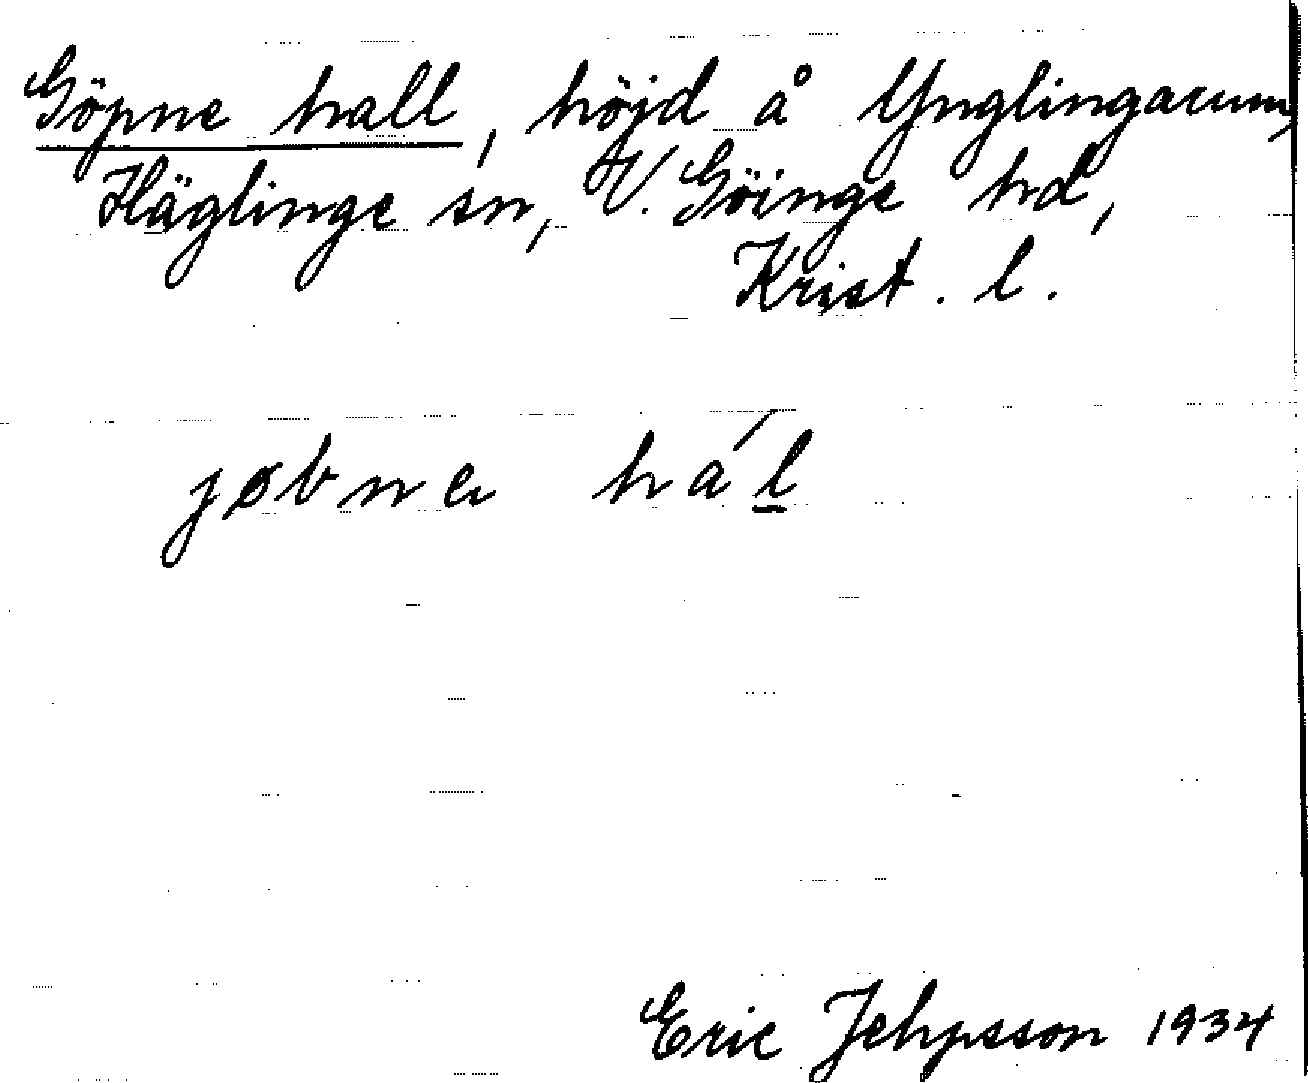 Göpne hall, höjd å Ynglingarum,
Häglinge sn, V. Göinge hd,
Krist. l.
jøbne hál
Eric Jehpsson 1934